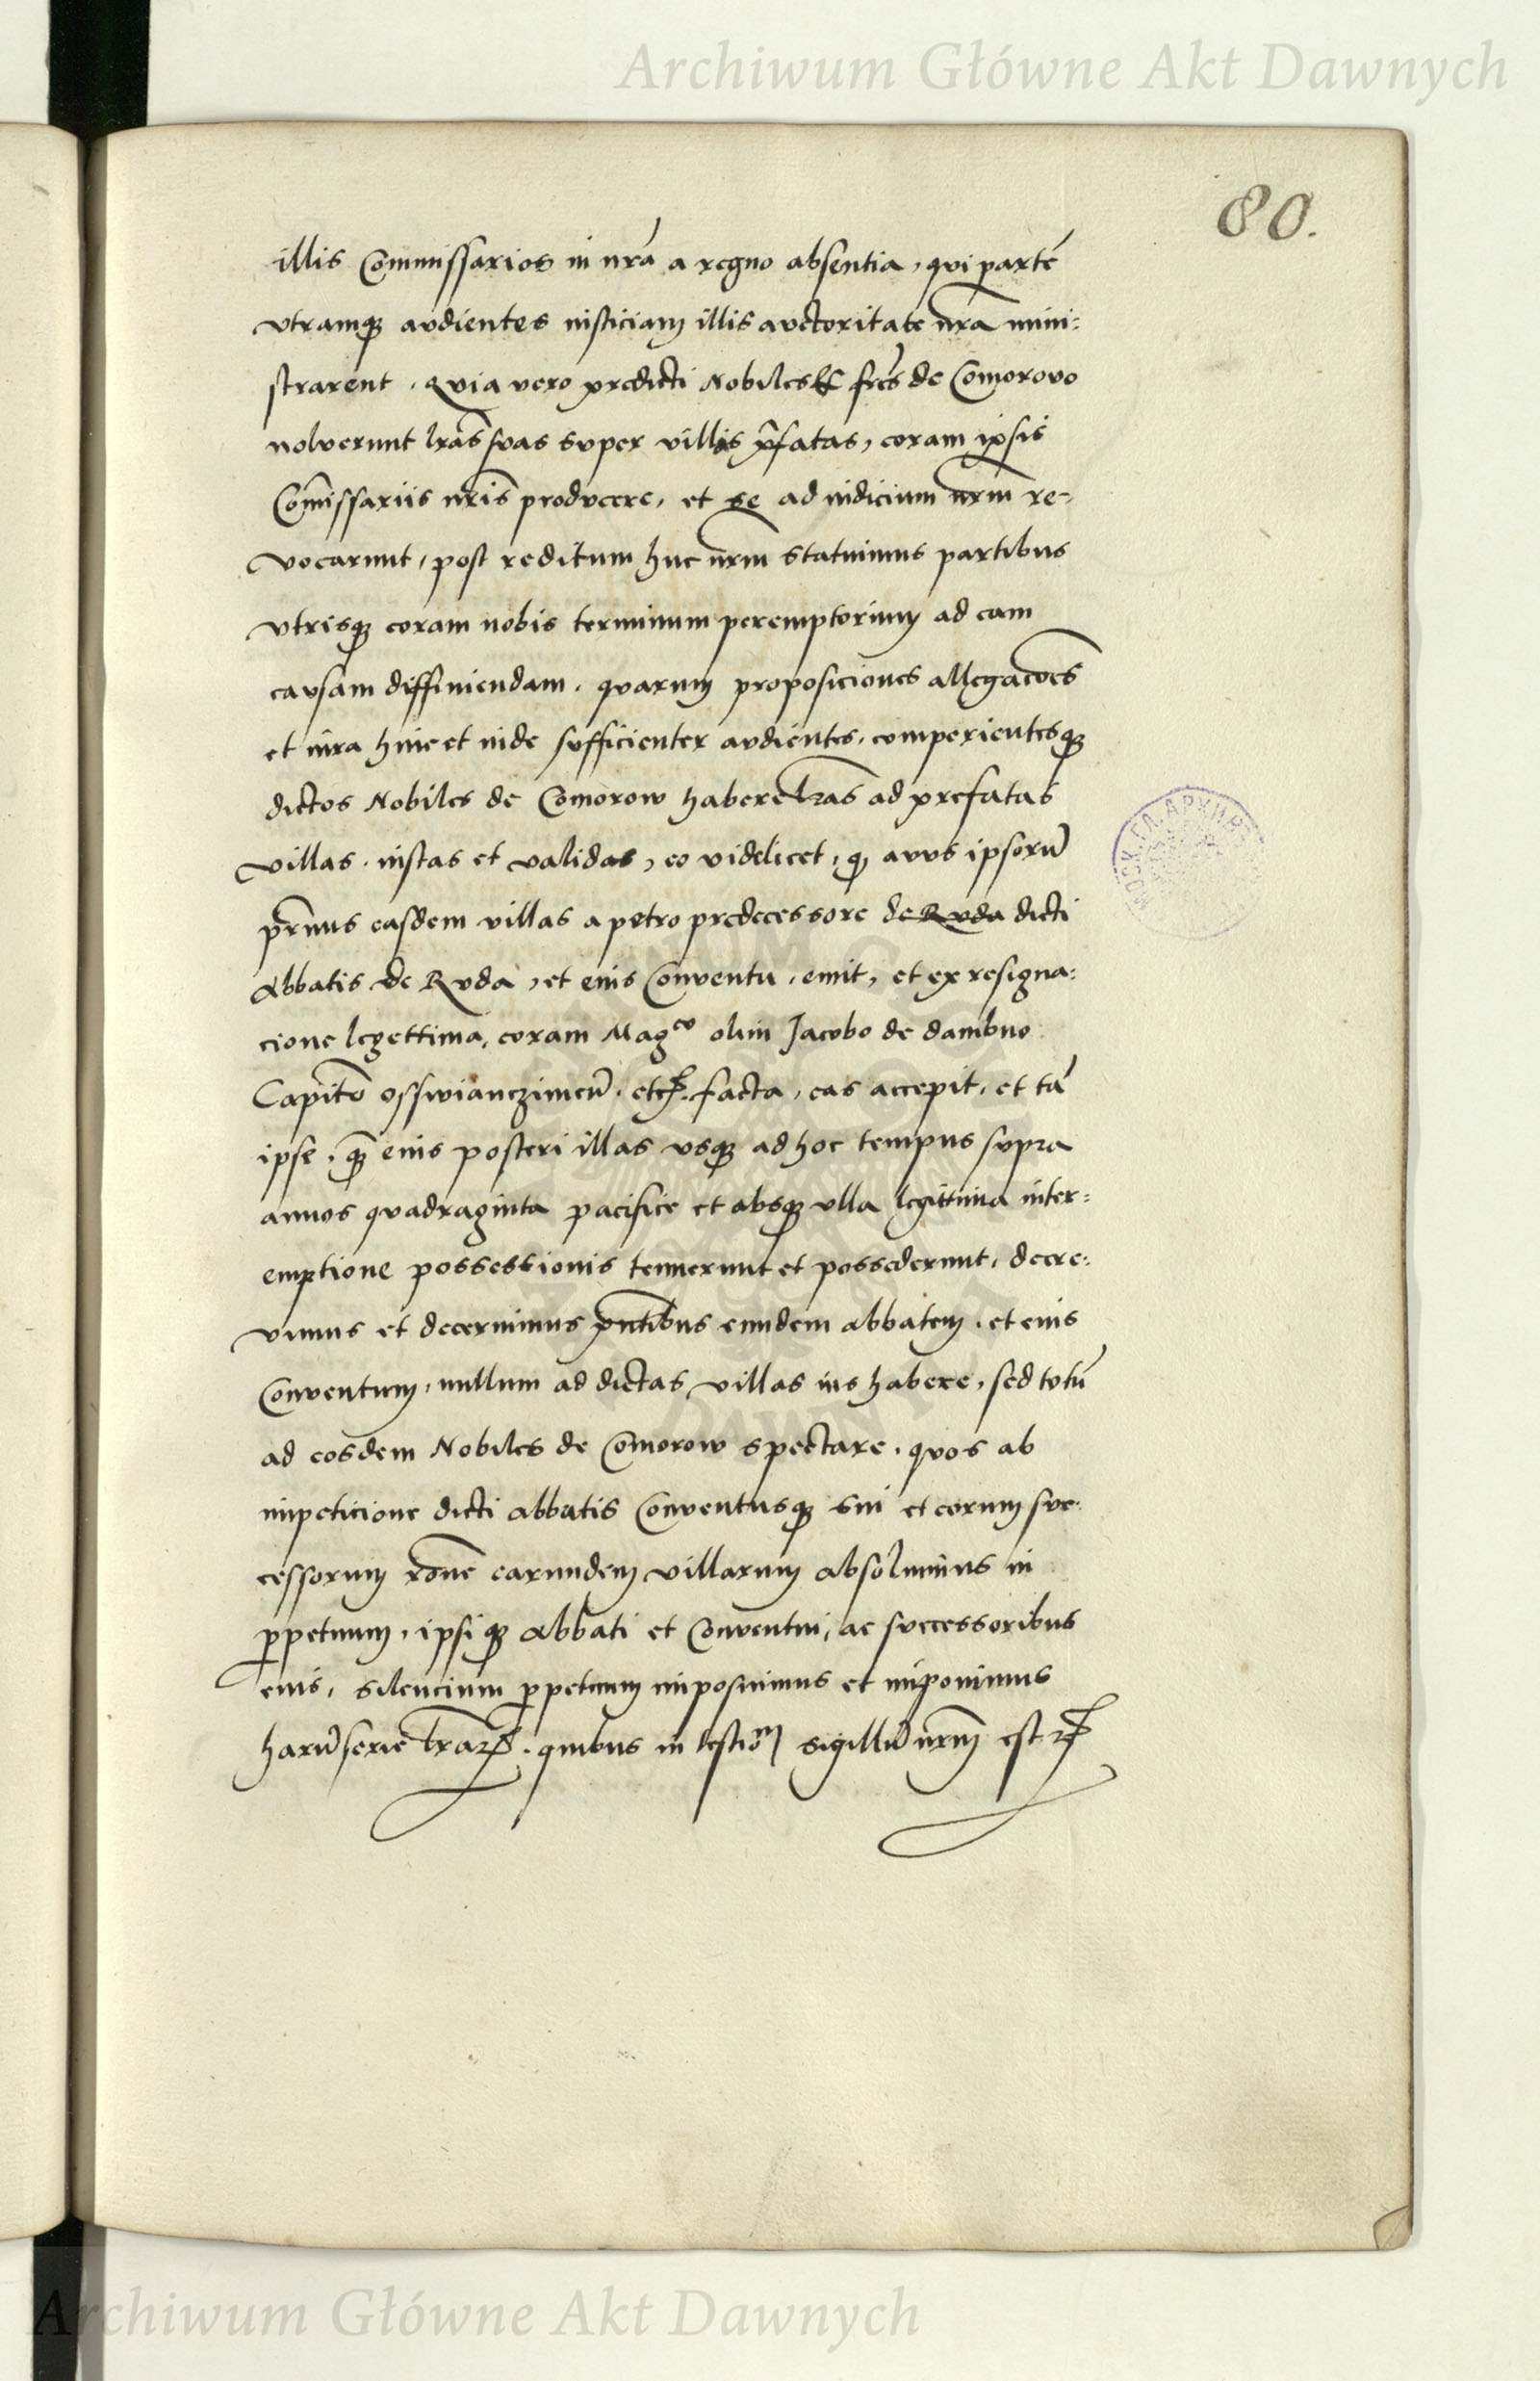 Archiwum Główne Akt Dawnych
80.
illis Commissarios in nrā a regno absentia, qui partē
vtramqꝫ audientes iusticiam illis auctoritate nr̄a mini:
strarent. Quia vero predicti Nobiles et fr̄es de Comorovo
noluerunt lrās suas super villis p̄fatas, coram ipsis
Com̄issariis nrīs producere, et se ad iudicium nr̄m re-
vocarunt, post reditum huc nr̄m statuimus partibus
vtrisqꝫ coram nobis terminum peremptorium ad eam
causam diffiniendam. quarum proposiciones allegacōes
et iura hinc et inde sufficienter audientes, comperientesqꝫ
dictos Nobiles de Comorow habere lrās ad prefatas
villas iustas et validas, eo videlicet, qꝫ auus ipsorū
pr̄mus easdem villas a petro predecessore de Ruda dicti
Abbatis de Ruda, et eius Conventu, emit, et ex resigna:
cione legettima, coram Magco olim Jacobo de dambno
Capitō Osswianczimeñ. etcꝭ. facta, eas accepit, et tā
ipse, qꝫ̄ eius posteri illas vsqꝫ ad hoc tempus supra
annos quadraginta pacifice et absqꝫ vlla legittima inter:
emptione possessionis tenuerunt et possederunt, decre:
vimus et decernimus pn̄tibus eundem abbatem, et eius
Conventum, nullum ad dictas villas ius habere, sed totū
ad eosdem Nobiles de Comorow spectare. quos ab
impeticione dicti abbatis Conventusqꝫ sui et eorum suc:
cessorum rōne earundem villarum absoluimus in
ꝑpetuum, ipsiqꝫ Abbati et Conventui, ac successoribus
eius, silencium ꝑpetuum imposuimus et imponimus
harū serie lrāꝝ. quibus in testiom sigillū nr̄m est ꝛꝭ
Archiwum Główne Akt Dawnych